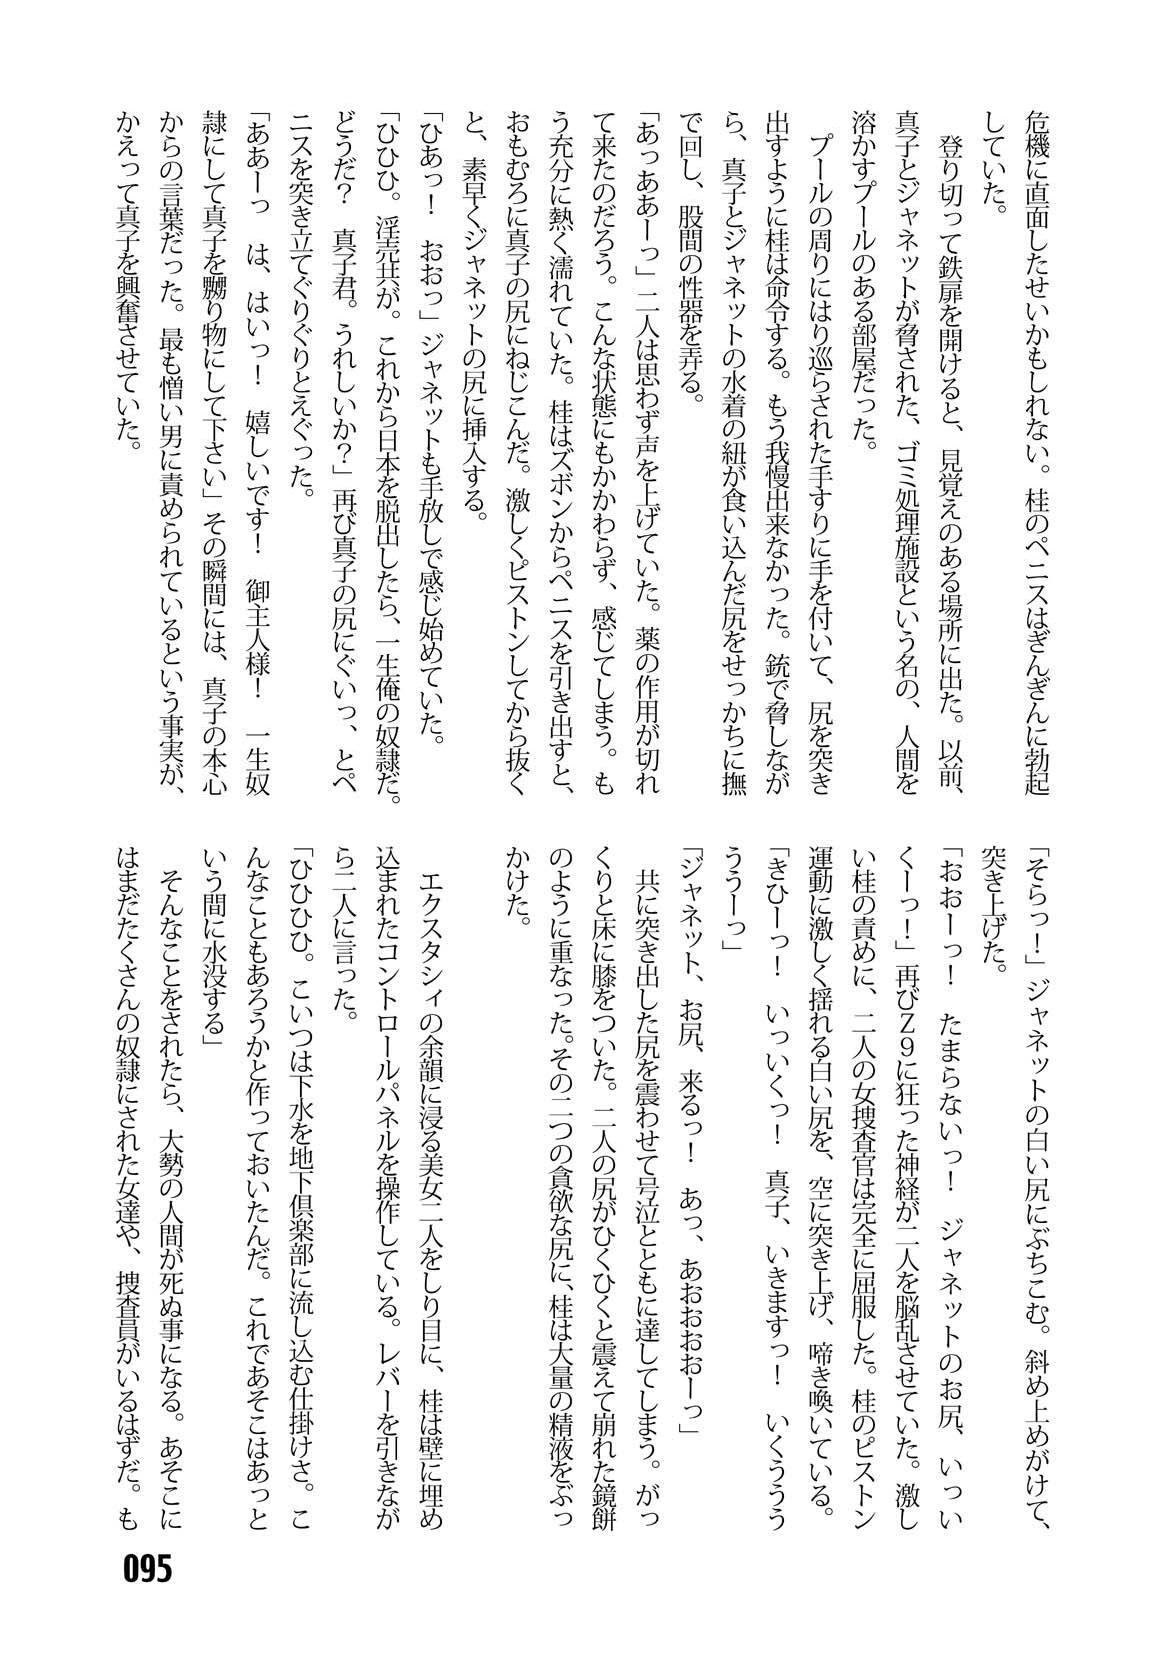 危機に直面したせいかもしれない。桂のペニスはぎんぎんに勃起
していた。
　登り切って鉄扉を開けると、見覚えのある場所に出た。以前、
真子とジャネットが脅された、ゴミ処理施設という名の、人間を
溶かすプールのある部屋だった。
　プールの周りにはり巡らされた手すりに手を付いて、尻を突き
出すように桂は命令する。もう我慢出来なかった。銃で脅しなが
ら、真子とジャネットの水着の紐が食い込んだ尻をせっかちに撫
で回し、股間の性器を弄る。
「あっああーっ」二人は思わず声を上げていた。薬の作用が切れ
て来たのだろう。こんな状態にもかかわらず、感じてしまう。も
う充分に熱く濡れていた。桂はズボンからペニスを引き出すと、
おもむろに真子の尻にねじこんだ。激しくピストンしてから抜く
と、素早くジャネットの尻に挿入する。
「ひあっ！　おおっ」ジャネットも手放しで感じ始めていた。
「ひひひ。淫売共が。これから日本を脱出したら、一生俺の奴隷だ。
どうだ？　真子君。うれしいか？」再び真子の尻にぐいっ、とペ
ニスを突き立てぐりぐりとえぐった。
「ああーっ　は、はいっ！　嬉しいです！　御主人様！　一生奴
隷にして真子を嬲り物にして下さい」その瞬間には、真子の本心
からの言葉だった。最も憎い男に責められているという事実が、
かえって真子を興奮させていた。
「そらっ！」ジャネットの白い尻にぶちこむ。斜め上めがけて、
突き上げた。
「おおーっ！　たまらないっ！　ジャネットのお尻、いっい
くーっ！」再びＺ９に狂った神経が二人を脳乱させていた。激し
い桂の責めに、二人の女捜査官は完全に屈服した。桂のピストン
運動に激しく揺れる白い尻を、空に突き上げ、啼き喚いている。
「きひーっ！　いっいくっ！　真子、いきますっ！　いくううう
ううーっ」
「ジャネット、お尻、来るっ！　あっ、あおおおおーっ」
　共に突き出した尻を震わせて号泣とともに達してしまう。がっ
くりと床に膝をついた。二人の尻がひくひくと震えて崩れた鏡餅
のように重なった。その二つの貪欲な尻に、桂は大量の精液をぶっ
かけた。
　エクスタシィの余韻に浸る美女二人をしり目に、桂は壁に埋め
込まれたコントロールパネルを操作している。レバーを引きなが
ら二人に言った。
「ひひひひ。こいつは下水を地下倶楽部に流し込む仕掛けさ。こ
んなこともあろうかと作っておいたんだ。これであそこはあっと
いう間に水没する」
　そんなことをされたら、大勢の人間が死ぬ事になる。あそこに
はまだたくさんの奴隷にされた女達や、捜査員がいるはずだ。も
095